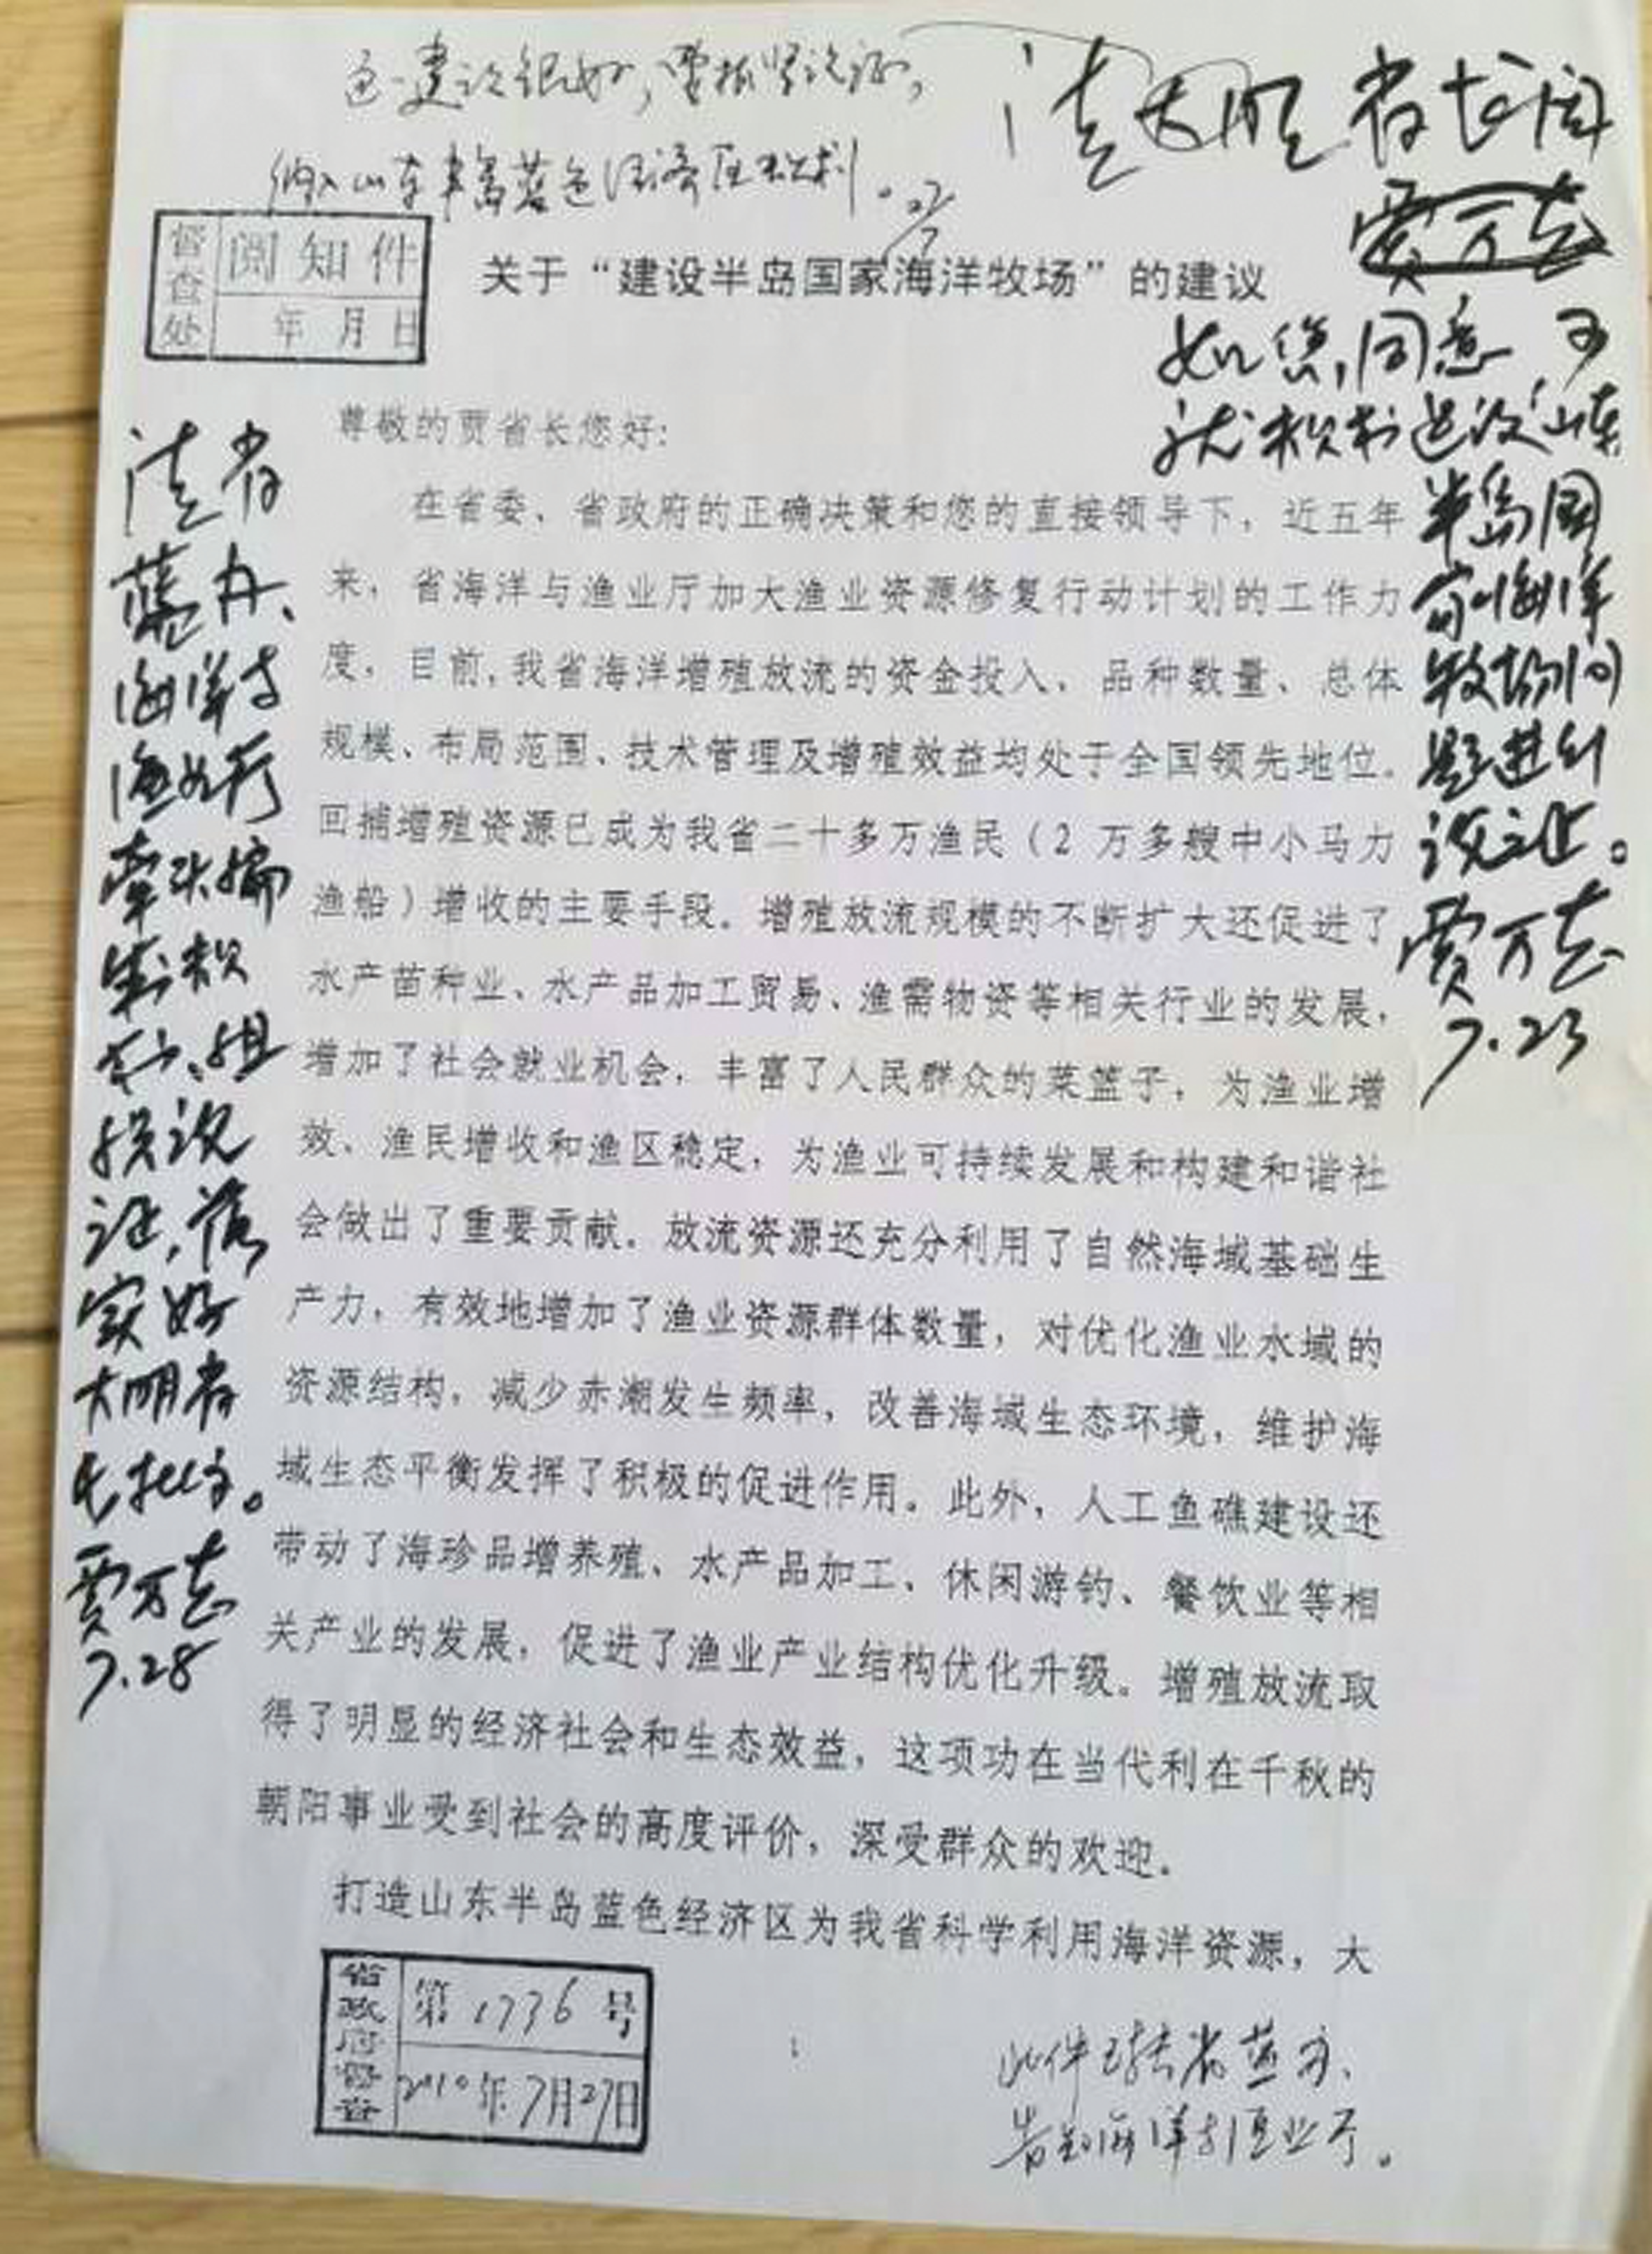 这一建议很好，要抓紧论证，
纳入山东半岛蓝色经济区规划。27/7
请大明省长阅
贾万志
如您同意 可
就积极建设“山东
半岛国
家海洋
牧场问
题进行
论证。
贾万志
7.23
督查处
阅知件
年 月 日
关于“建设半岛国家海洋牧场”的建议
尊敬的贾省长您好:
在省委、省政府的正确决策和您的直接领导下，近五年
来，省海洋与渔业厅加大渔业资源修复行动计划的工作力
度，目前，我省海洋增殖放流的资金投入、品种数量、总体
规模、布局范围、技术管理及增殖效益均处于全国领先地位。
回捕增殖资源已成为我省二十多万渔民（2 万多艘中小马力
渔船）增收的主要手段。增殖放流规模的不断扩大还促进了
水产苗种业、水产品加工贸易、渔需物资等相关行业的发展，
增加了社会就业机会，丰富了人民群众的菜篮子，为渔业增
效、渔民增收和渔区稳定，为渔业可持续发展和构建和谐社
会做出了重要贡献。放流资源还充分利用了自然海域基础生
产力，有效地增加了渔业资源群体数量，对优化渔业水域的
资源结构，减少赤潮发生频率，改善海域生态环境，维护海
域生态平衡发挥了积极的促进作用。此外，人工鱼礁建设还
带动了海珍品增养殖、水产品加工、休闲游钓、餐饮业等相
关产业的发展，促进了渔业产业结构优化升级。增殖放流取
得了明显的经济社会和生态效益，这项功在当代利在千秋的
朝阳事业受到社会的高度评价，深受群众的欢迎。
打造山东半岛蓝色经济区为我省科学利用海洋资源，大
请省
蓝办、
海洋与
渔业厅
牵头编
制规
划、组
织论
证，落
实好
大明省
长批示。
贾万志
7.28
省政府督查
第 1736 号
2010年7月27日
此件已转省蓝办、
省海洋与渔业厅。